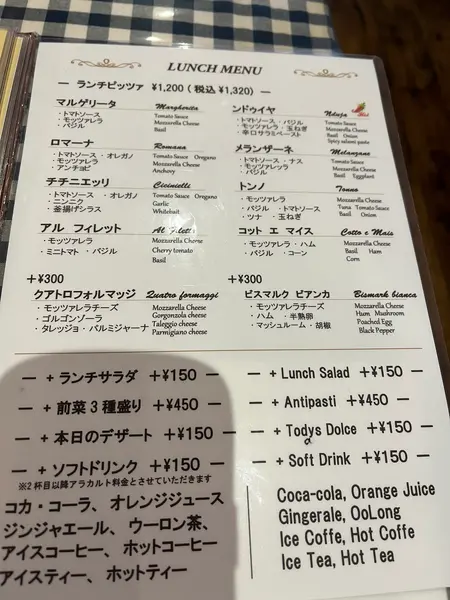 LUNCH MENU
— ランチピッツァ ¥1,200 ( 税込 ¥1,320) —
マルゲリータ Margherita
・トマトソース Tomato Sauce
・モッツァレラ Mozzarella Cheese
・バジル Basil
ロマーナ Romana
・トマトソース ・オレガノ Tomato Sauce Oregano
・モッツァレラ Mozzarella Cheese
・アンチョビ Anchovy
チチニエッリ Cicinielli
・トマトソース ・オレガノ Tomato Sauce Oregano
・ニンニク Garlic
・釜揚げシラス Whitebait
アル フィレット Al Filetto
・モッツァレラ Mozzarella Cheese
・ミニトマト ・バジル Cherry tomato
Basil
ンドゥイヤ Nduja
・トマトソース ・バジル Tomato Sauce
・モッツァレラ ・玉ねぎ Mozzarella Cheese
・辛口サラミペースト Basil Onion
Spicy salami paste
メランザーネ Melanzane
・トマトソース ・ナス Tomato Sauce
・モッツァレラ Mozzarella Cheese
・バジル Basil Eggplant
トンノ Tonno
・モッツァレラ Mozzarella Cheese
・バジル ・トマトソース Tuna Tomato Sauce
・ツナ ・玉ねぎ Basil Onion
コット エ マイス Cotto e Mais
・モッツァレラ ・ハム Mozzarella Cheese
・バジル ・コーン Basil Ham
Corn
+¥300
クアトロフォルマッジ Quatro formaggi
・モッツァレラチーズ Mozzarella Cheese
・ゴルゴンゾーラ Gorgonzola cheese
・タレッジョ ・パルミジャーナ Taleggio cheese
Parmigiano cheese
+¥300
ビスマルク ビアンカ Bismark bianca
・モッツァレラチーズ Mozzarella Cheese
・ハム ・半熟卵 Hum Mushroom
・マッシュルーム ・胡椒 Poached Egg
Black Pepper
— + ランチサラダ +¥150 —
— + 前菜3種盛り +¥450 —
— + 本日のデザート +¥150 —
— + ソフトドリンク +¥150 —
※2杯目以降アラカルト料金とさせていただきます
コカ・コーラ、オレンジジュース
ジンジャエール、ウーロン茶、
アイスコーヒー、ホットコーヒー
アイスティー、ホットティー
— + Lunch Salad +¥150 —
— + Antipasti +¥450 —
— + Todys Dolce +¥150 —
a
— + Soft Drink +¥150 —
Coca-cola, Orange Juice
Gingerale, OoLong
Ice Coffe, Hot Coffe
Ice Tea, Hot Tea